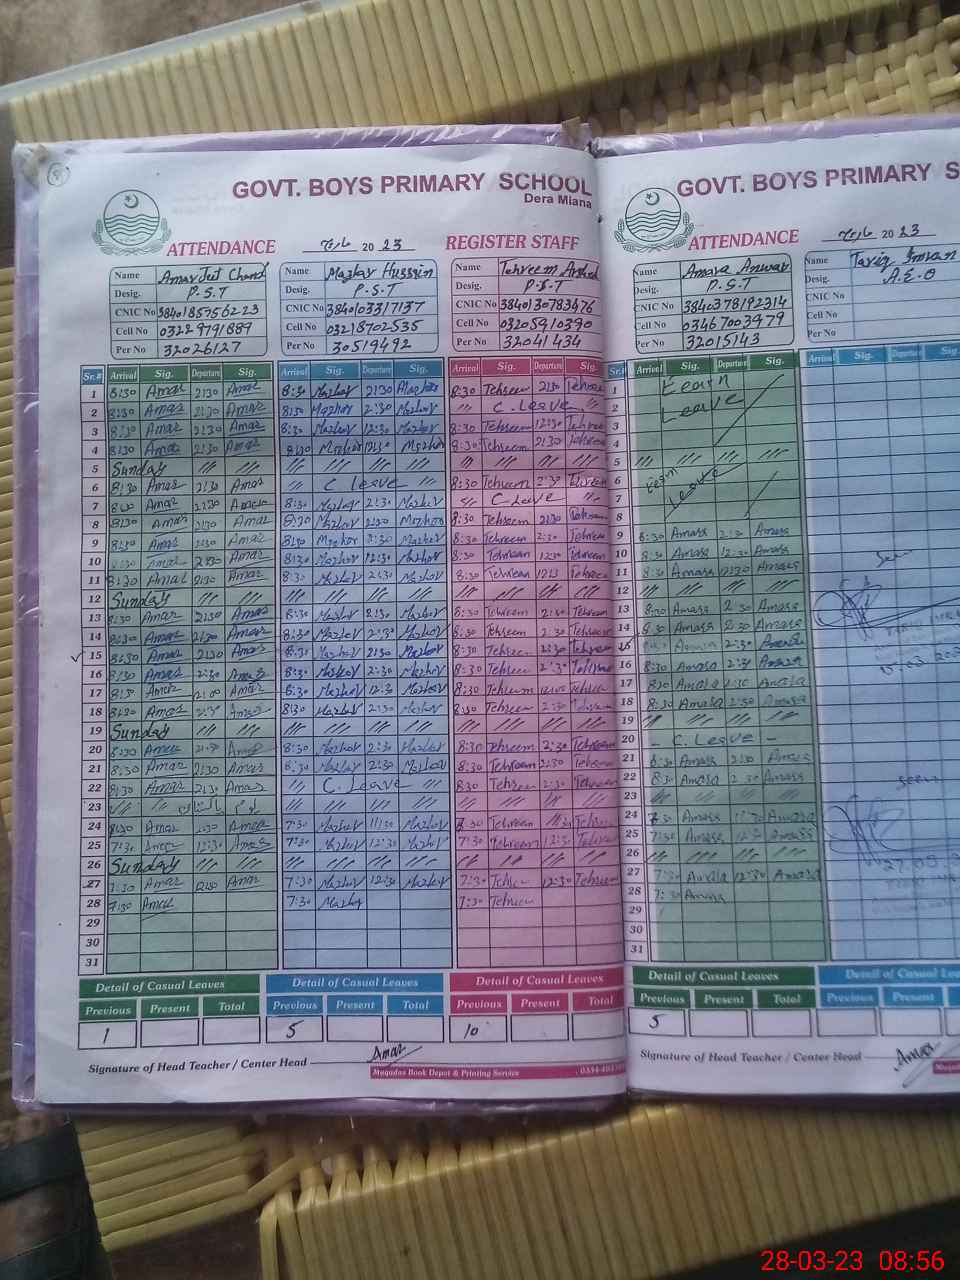 GOVT. BOYS PRIMARY SCHOOL
Dera Miana
ATTENDANCE مارچ 2023 REGISTER STAFF
Name Amar Jot Chand
Desig. P.S.T
CNIC No 3840185756223
Cell No 03229791889
Per No 32026127
Name Mazhar Hussain
Desig. P.S.T
CNIC No 3840103317137
Cell No 03218702535
Per No 30519492
Name Tehreem Arshad
Desig. P.S.T
CNIC No 3840130783476
Cell No 03205910390
Per No 32041434
Sr.# Arrival Sig. Departure Sig. Arrival Sig. Departure Sig. Arrival Sig. Departure Sig.
1 8:30 Amar 2:30 Amar 8:30 Mazhar 2:30 Mazhar 8:30 Tehreem 2:30 Tehreem
2 8:30 Amar 2:30 Amar 8:30 Mazhar 2:30 Mazhar C. Leave
3 8:30 Amar 2:30 Amar 8:30 Mazhar 12:30 Mazhar 8:30 Tehreem 12:30 Tehreem
4 8:30 Amar 2:30 Amar 8:30 Mazhar Mazhar 8:30 Tehreem 2:30 Tehreem
5 Sunday
6 8:30 Amar 2:30 Amar C. Leave 8:30 Tehreem 2:30 Tehreem
7 Amar 2:30 Amar 8:30 Mazhar 2:30 Mazhar C. Leave
8 8:30 Amar 2:30 Amar 8:30 Mazhar 2:30 Mazhar 8:30 Tehreem 2:30 Tehreem
9 8:30 Amar 2:30 Amar 8:30 Mazhar 2:30 Mazhar 8:30 Tehreem 2:30 Tehreem
10 8:30 Amar 2:30 Amar 8:30 Mazhar 12:30 Mazhar 8:30 Tehreem 12:30 Tehreem
11 8:30 Amar 2:30 Amar 8:30 Mazhar 2:30 Mazhar 8:30 Tehreem Tehreem
12 Sunday
13 8:30 Amar 2:30 Amar 8:30 Mazhar 2:30 Mazhar 8:30 Tehreem 2:30 Tehreem
14 8:30 Amar 2:30 Amar 8:30 Mazhar 2:30 Mazhar 8:30 Tehreem 2:30 Tehreem
15 8:30 Amar 2:30 Amar 8:30 Mazhar 2:30 Mazhar 8:30 Tehreem 2:30 Tehreem
16 8:30 Amar 2:30 Amar 8:30 Mazhar 2:30 Mazhar 8:30 Tehreem 2:30 Tehreem
17 8:30 Amar 12:00 Amar 8:30 Mazhar 12:30 Mazhar 8:30 Tehreem Tehreem
18 8:30 Amar 2:30 Amar 8:30 Mazhar 2:30 Mazhar 8:30 Tehreem 2:30 Tehreem
19 Sunday
20 8:30 Amar 2:30 Amar 8:30 Mazhar 2:30 Mazhar 8:30 Tehreem 2:30 Tehreem
21 8:30 Amar 2:30 Amar 8:30 Mazhar 2:30 Mazhar 8:30 Tehreem 2:30 Tehreem
22 8:30 Amar 2:30 Amar C. Leave 8:30 Tehreem 2:30 Tehreem
23 یوم پاکستان
24 Amar Amar 7:30 Mazhar 11:30 Mazhar 7:30 Tehreem 11:30 Tehreem
25 7:30 Amar 12:30 Amar 7:30 Mazhar 12:30 Mazhar 7:30 Tehreem 12:30 Tehreem
26 Sunday
27 7:30 Amar 12:30 Amar 7:30 Mazhar 12:30 Mazhar 7:30 Tehreem 12:30 Tehreem
28 7:30 Amar 7:30 Mazhar 7:30 Tehreem
29
30
31
Detail of Casual Leaves Detail of Casual Leaves Detail of Casual Leaves
Previous Present Total Previous Present Total Previous Present Total
1 5 10
Signature of Head Teacher / Center Head Amar
Muqadas Book Depot & Printing Service
GOVT. BOYS PRIMARY S
ATTENDANCE مارچ 2023
Name Amara Anwar
Desig. P.S.T
CNIC No 3840378192314
Cell No 03467003979
Per No 32015143
Name Tariq Imran
Desig. A.E.O
CNIC No
Cell No
Per No
Arrival Sig. Departure Sig. Arrival Sig. Departure Sig
1 Earn
2 Leave
3
4
5
6 Earn
7 Leave
8
9 8:30 Amara 2:30 Amara
10 8:30 Amara 12:30 Amara
11 8:30 Amara Amara
12
13 8:30 Amara 2:30 Amara
14 8:30 Amara 2:30 Amara
15 Amara 2:30 Amara
16 8:30 Amara 2:30 Amara
17 8:30 Amara Amara
18 8:30 Amara 2:30 Amara
19
20 - C. Leave -
21 8:30 Amara 2:30 Amara
22 8:30 Amara 2:30 Amara
23
24 7:30 Amara Amara
25 7:30 Amara 12:30 Amara
26
27 7:30 Amara 12:30 Amara
28 7:30 Amara
29
30
31
Detail of Casual Leaves Detail of Casual Lea
Previous Present Total Previous Present
5
Signature of Head Teacher / Center Head Amar
28-03-23 08:56